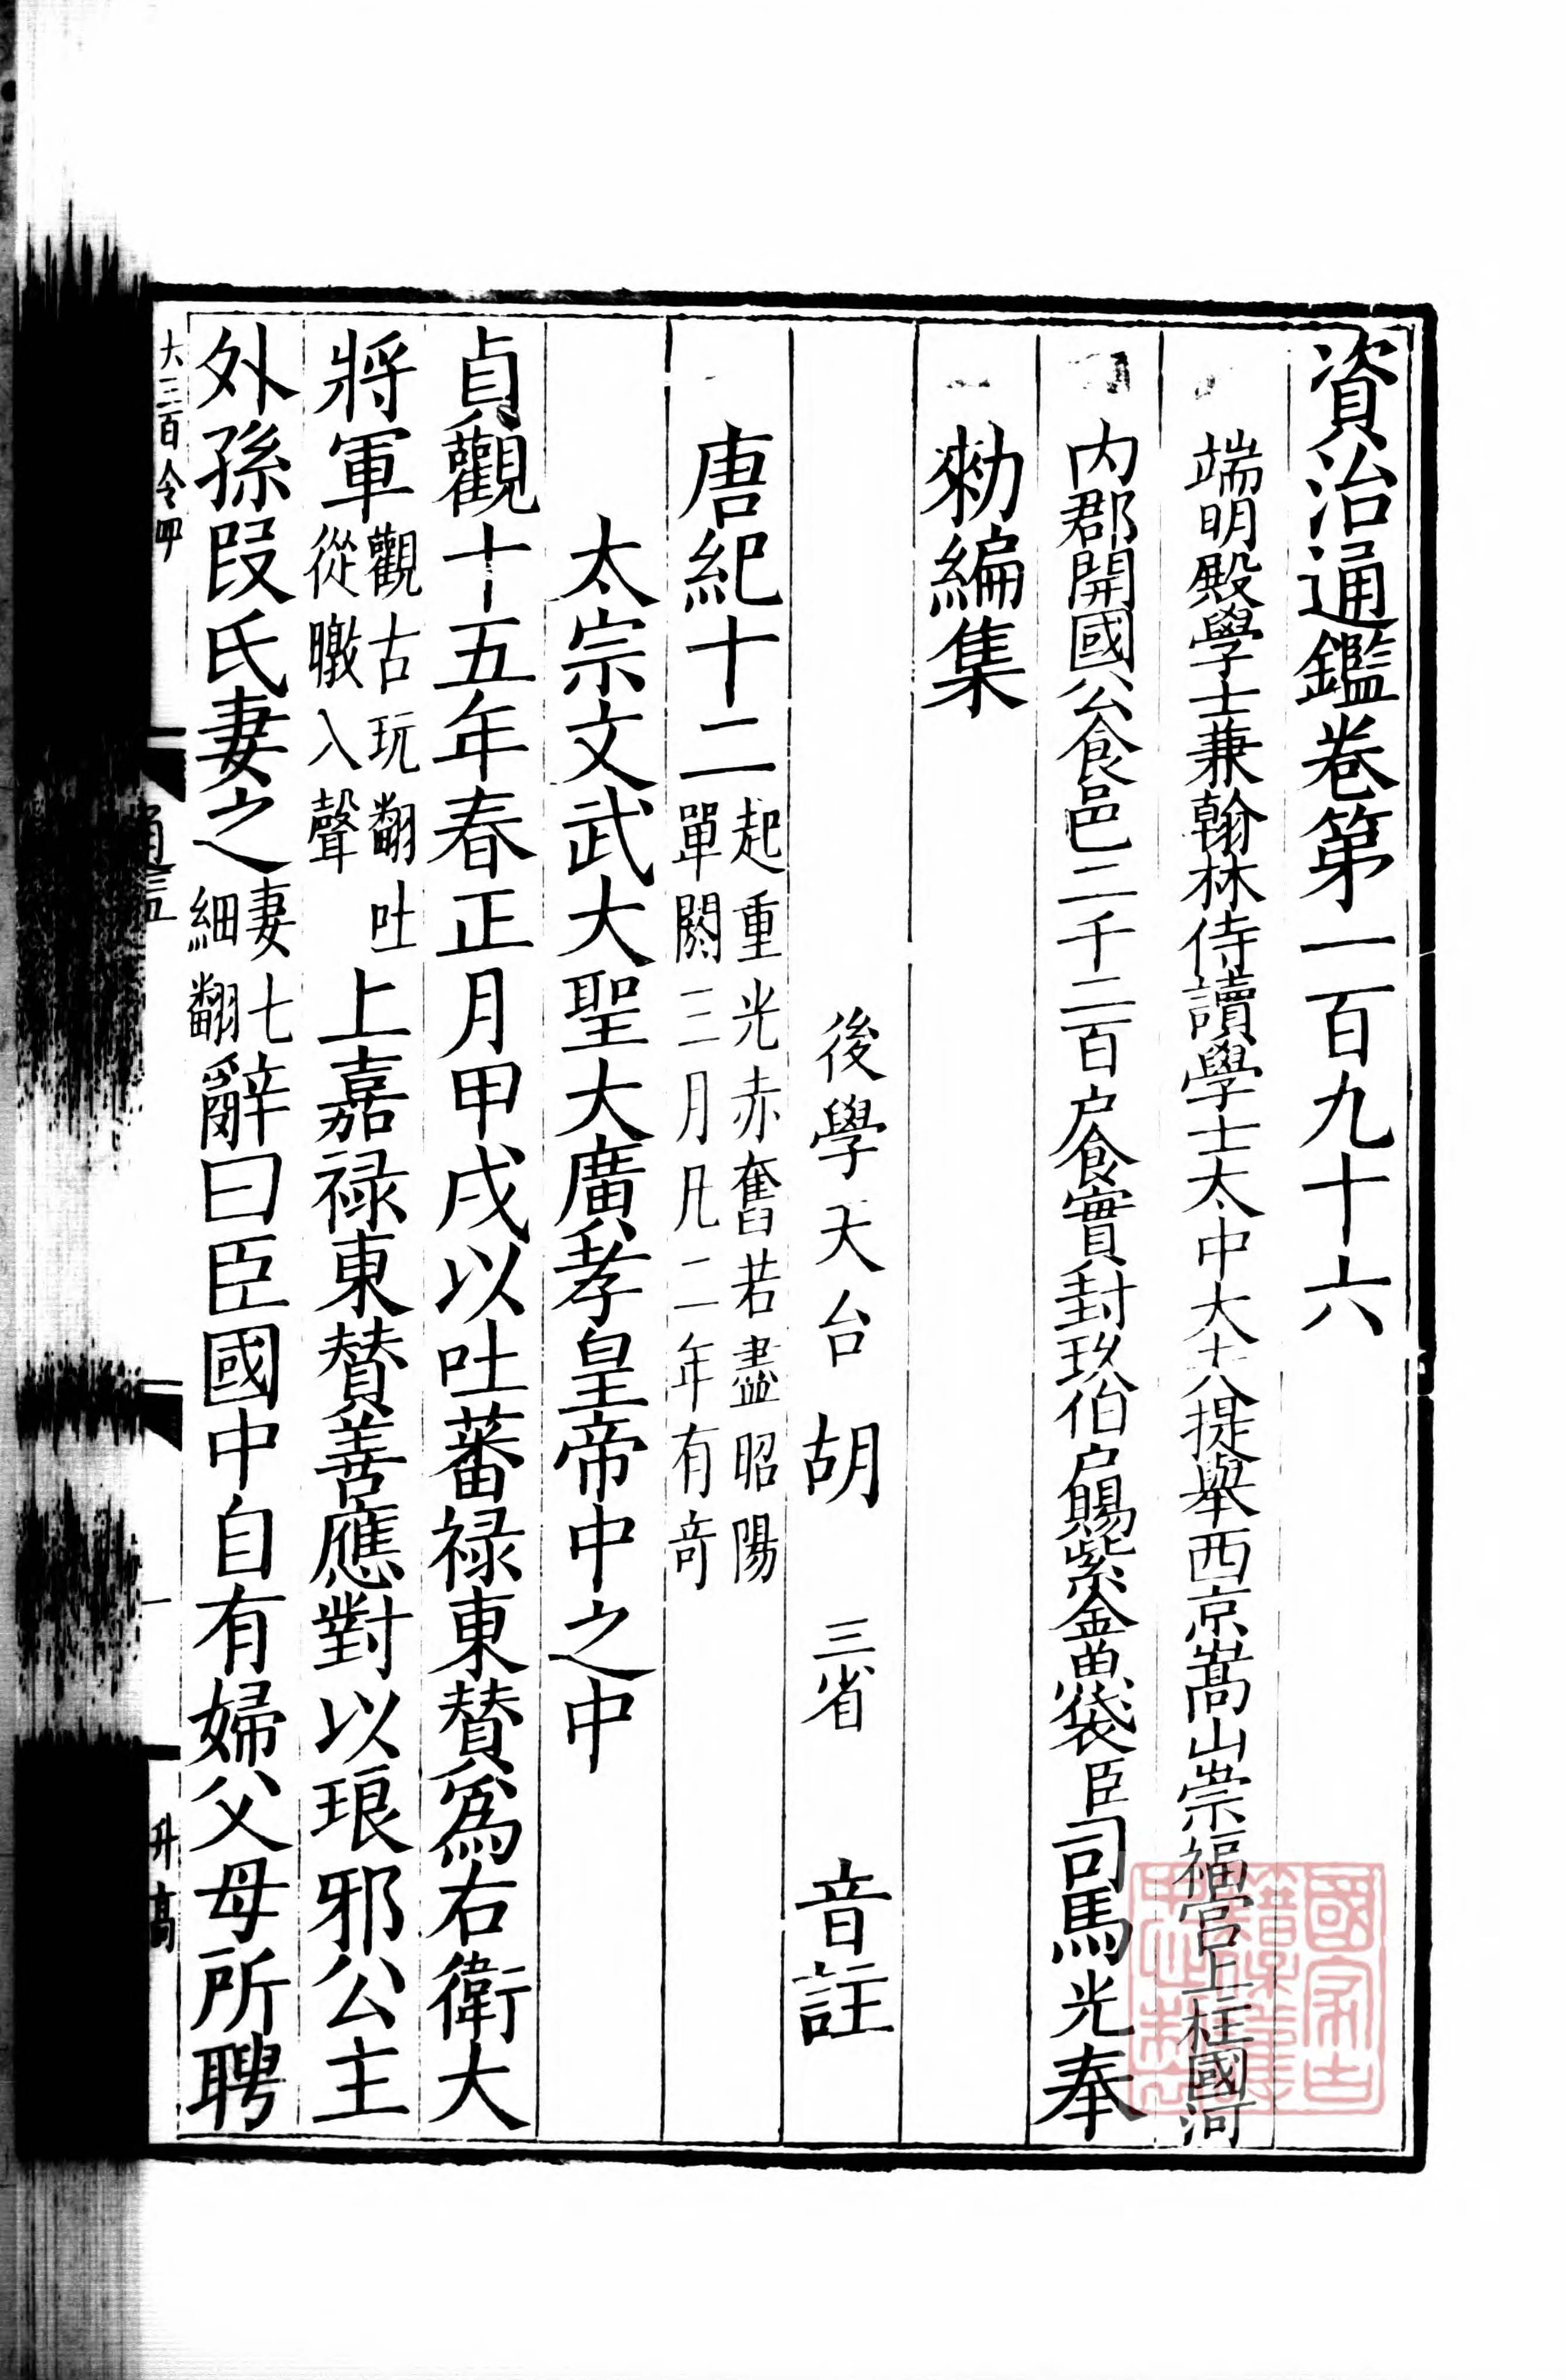 資治通鑑卷第一百九十六
端明殿學士兼翰林侍讀學士太中大夫提舉西京嵩山崇福宮上柱國河
内郡開國公食邑二千二百户食實封玖伯户賜紫金魚袋臣司馬光奉
勑編集
後學天台胡三省音註
唐紀十二起重光赤奮若盡昭陽單閼三月凡二年有奇
太宗文武大聖大廣孝皇帝中之中
貞觀十五年春正月甲戌以吐蕃禄東贊爲右衛大
將軍觀古玩翻吐從暾入聲上嘉禄東贊善應對以琅邪公主
外孫段氏妻之妻七細翻辭曰臣國中自有婦父母所聘
大三百令四
一